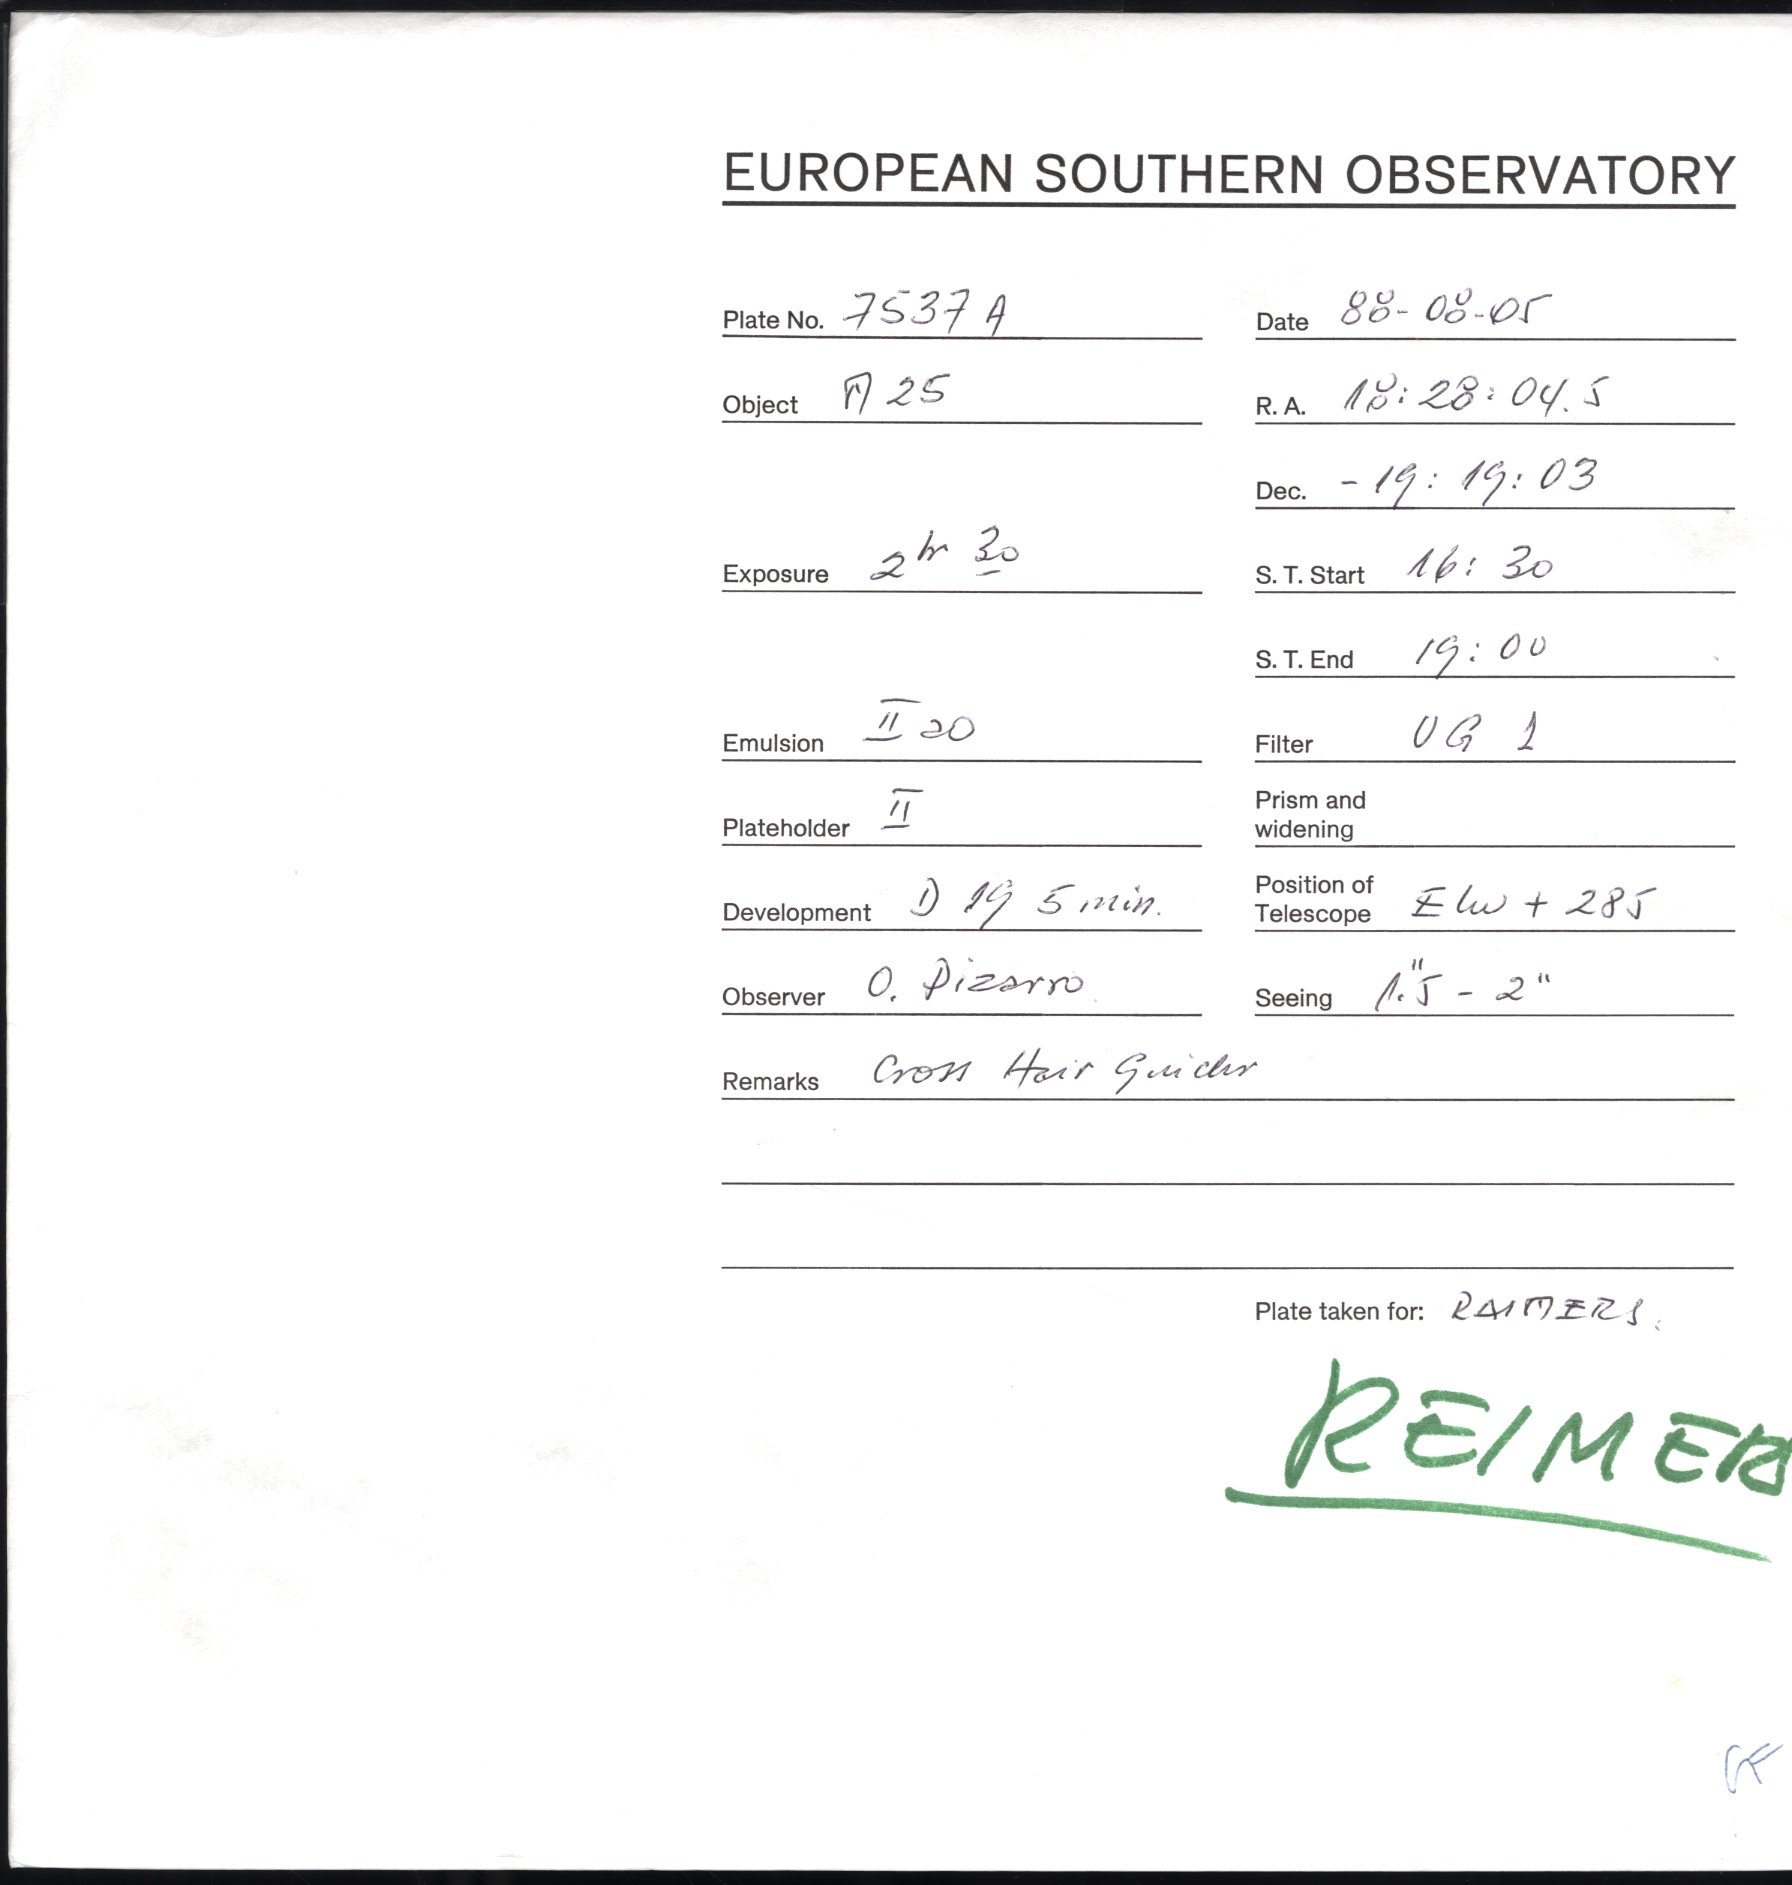 EUROPEAN SOUTHERN OBSERVATORY
Plate No. 7537 A Date 88-08-05
Object M 25 R. A. 18:28:04.5
Dec. -19:19:03
Exposure 2hr 30 S. T. Start 16:30
S. T. End 19:00
Emulsion II aO Filter UG 1
Plateholder II Prism and
widening
Development D 19 5 min. Position of
Telescope E/W + 285
Observer O. Pizarro Seeing 1."5 - 2"
Remarks Cross Hair Guider
Plate taken for: RAIMERS.
REIMER